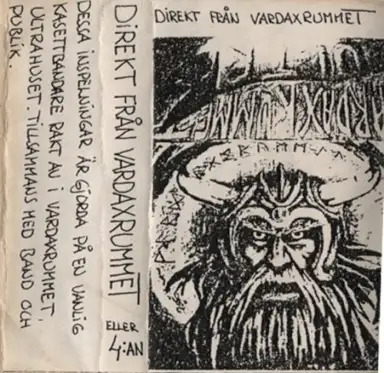 DESSA INSPELNINGAR ÄR GJORDA PÅ EN VANLIG
KASETTBANDARE RAKT AV I VARDAXRUMMET,
ULTRAHUSET. TILLSAMMANS MED BAND OCH
PUBLIK.
DIREKT FRÅN VARDAXRUMMET
ELLER
4:AN
DIREKT FRÅN VARDAXRUMMET